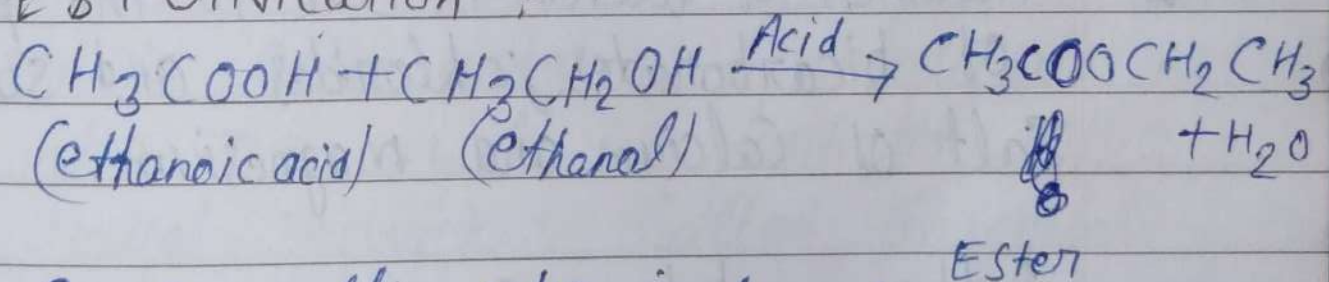 CH₃COOH + CH₃CH₂OH Acid→ CH₃COOCH₂CH₃
(ethanoic acid) (ethanol) + H₂O
Ester